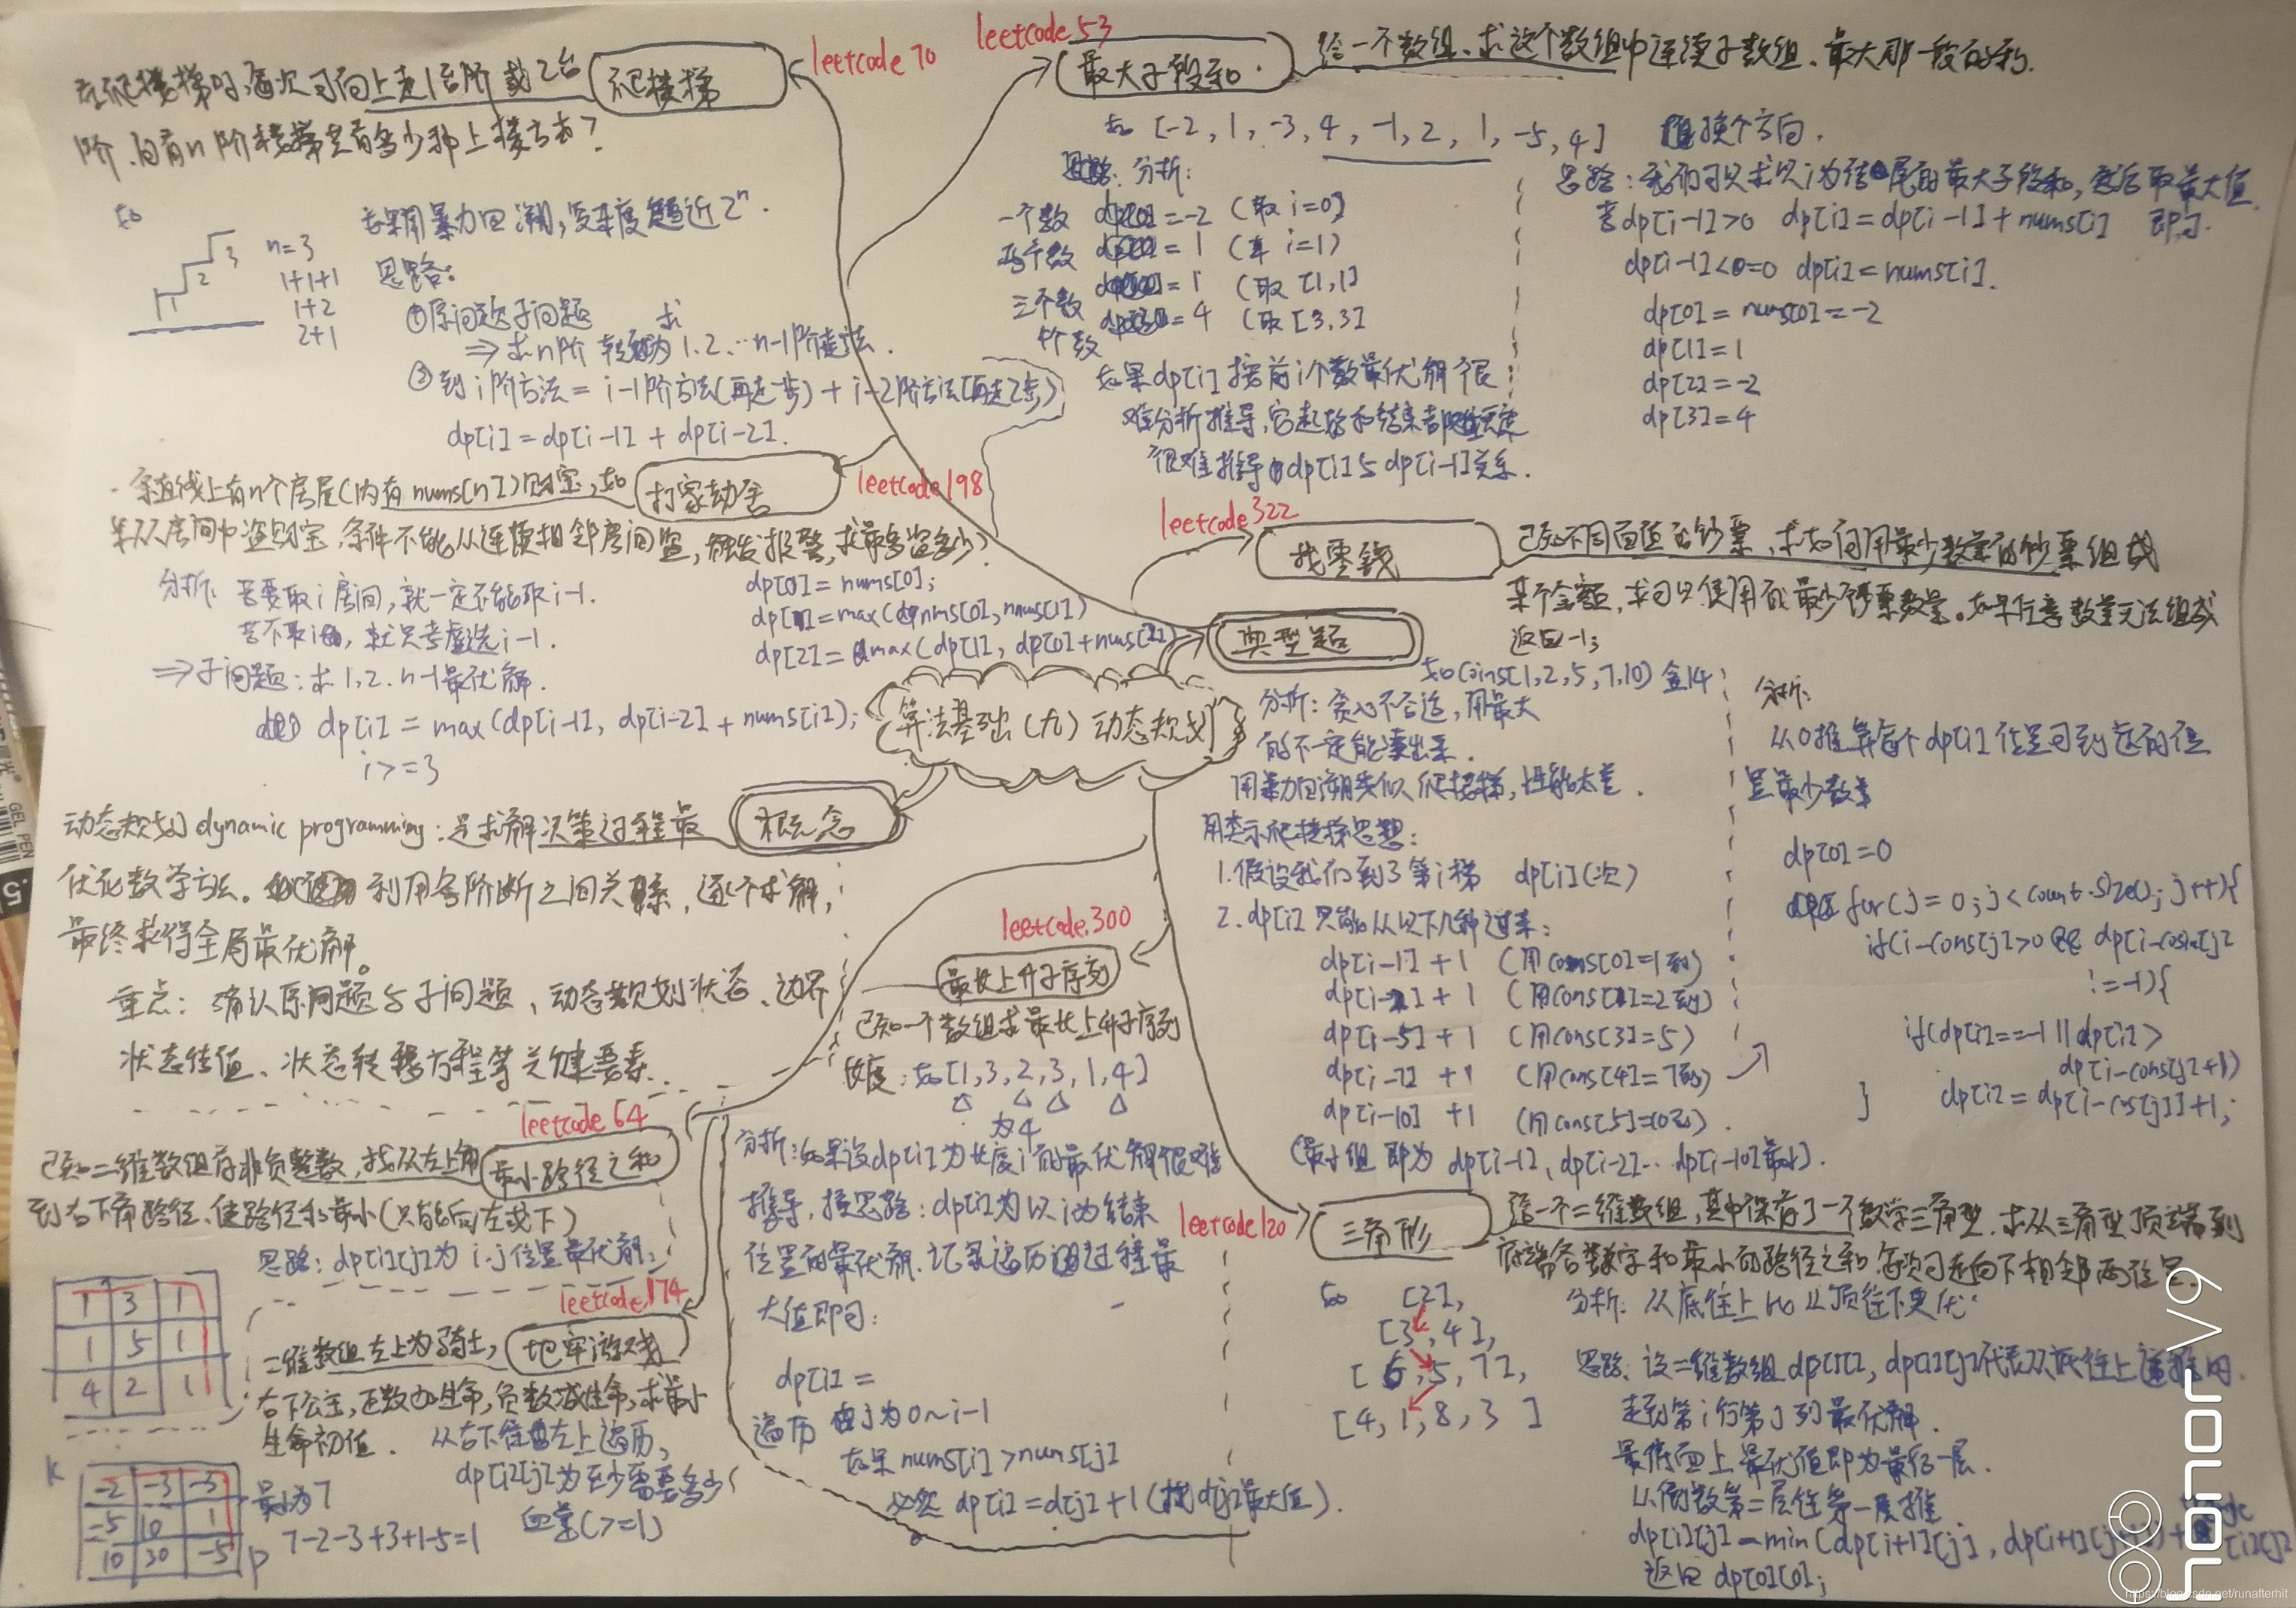 leetcode 70
爬楼梯
在爬楼梯时,每次可向上走1台阶或2台
阶.问有n阶楼梯共有多少种上楼方法?
如
3
2
1
n=3
1+1+1
1+2
2+1
如果用暴力回溯,复杂度趋近2ⁿ.
思路:
①原问题子问题
⇒ 求n阶 转为求 1.2…n-1阶走法.
②到i阶方法 = i-1阶方法(再走一步) + i-2阶方法(再走2步)
dp[i] = dp[i-1] + dp[i-2].
leetcode 53
最大子段和.
给一个数组、求这个数组中连续子数组、最大那一段的和.
如 [-2, 1, -3, 4, -1, 2, 1, -5, 4]
分析:
一个数 dp[0] = -2 (取 i=0]
两个数 = 1 (取 i=1)
三个数 = 1 (取 [1,1]
个数 = 4 (取 [3,3]
如果dp[i] 按前i个数最优解 很
难分析推导,它起始和结束都
很难推导dp[i]与dp[i-1]关系.
换个方向.
思路: 我们可以求以i为结尾的最大子段和,然后取最大值
若dp[i-1]>0 dp[i] = dp[i-1] + nums[i] 即可.
dp[i-1]<=0 dp[i] = nums[i].
dp[0] = nums[0] = -2
dp[1] = 1
dp[2] = -2
dp[3] = 4
leetcode 198
打家劫舍
一条直线上有n个房屋(内有 nums[n])财宝,如
从房间中盗财宝,条件不能从连续相邻房间盗,触发报警,求最多盗多少?
分析: 若要取i房间,就一定不能取i-1.
若不取i,就只考虑选i-1.
⇒子问题: 求1.2.n-1最优解.
dp[i] = max(dp[i-1], dp[i-2] + nums[i]);
i>=3
dp[0] = nums[0];
dp[1] = max(nums[0], nums[1])
dp[2] = max(dp[1], dp[0]+nums[2])
leetcode 322
找零钱
已知不同面值的钞票,求如何用最少数量的钞票组成
某个金额,求可以使用的最少钞票数量。如果任意数量无法组成
返回-1;
典型题
如coins[1,2,5,7,10] 金14
分析: 贪心不合适,用最大
的不一定能凑出来.
用暴力回溯类似爬楼梯,性能太差.
用类示爬楼梯思想:
1.假设我们到了第i梯 dp[i](次)
2.dp[i]只能从以下几种过来:
dp[i-1] + 1 (用cons[0]=1到)
dp[i-2] + 1 (用cons[1]=2到)
dp[i-5] + 1 (用cons[3]=5)
dp[i-7] + 1 (用cons[4]=7到)
dp[i-10] + 1 (用cons[5]=10到).
(最小组 即为 dp[i-1], dp[i-2]… dp[i-10]最小).
分析:
从0推算每个dp[i]位置可到达的位
置最少数量
dp[0]=0
for(j = 0; j < count.size(); j++){
if(i-cons[j]>0 && dp[i-coins[j]
!=-1){
if(dp[i]==-1 || dp[i]>
dp[i-cons[j]+1)
dp[i] = dp[i-cos[j]]+1;
}
算法基础(九) 动态规划
概念
动态规划 dynamic programming: 是求解决策过程最
优化数学方法。利用各阶断之间关系,逐个求解,
最终求得全局最优解。
重点: 确认原问题与子问题、动态规划状态、边界
状态结值、状态转移方程等关键要素.
leetcode.300
最长上升子序列
已知一个数组求最长上升子序列
长度: 如[1,3,2,3,1,4]
为4
分析: 如果设dp[i]为长度i的最优解很难
推导,换思路: dp[i]为以i为结束
位置的最优解.记录遍历过程最
大值即可:
dp[i] =
遍历 由j为0~i-1
如果 nums[i] > nums[j]
必然 dp[i] = d[j] + 1 (找d[j]最大值).
leetcode 64
最小路径之和
已知二维数组有非负整数,找从左上角
到右下角路径、使路径和最小(只能向左或下)
思路: dp[i][j]为 i.j位置最优解.
1 3 1
1 5 1
4 2 1
leetcode 174
地牢游戏
二维数组左上为骑士,
右下公主,正数加生命,负数减生命,求最小
生命初值. 从右下往左上遍历,
dp[i][j]为至少需要多少
血量(>=1)
K
-2 -3 -3
-5 10 1
10 30 -5
P
最小为7
7-2-3+3+1-5=1
leetcode 120
三角形
给一个二维数组,其中保存了一个数学三角型.求从三角型顶端到
底端各数字和最小的路径之和 每次可走向下相邻两位置.
如 [2],
[3,4],
[6,5,7],
[4,1,8,3]
分析: 从底往上比从顶往下更优.
思路: 设二维数组dp[][], dp[i][j]代表从底往上
走到第i行第j列最优解.
最底面上最优值即为最后一层.
从倒数第二层往第一层推
dp[i][j] = min(dp[i+1][j], dp[i+1][j+1]) + [i][j]
返回 dp[0][0];
honor V9
https://blog.csdn.net/runafterhit
GEL PEN